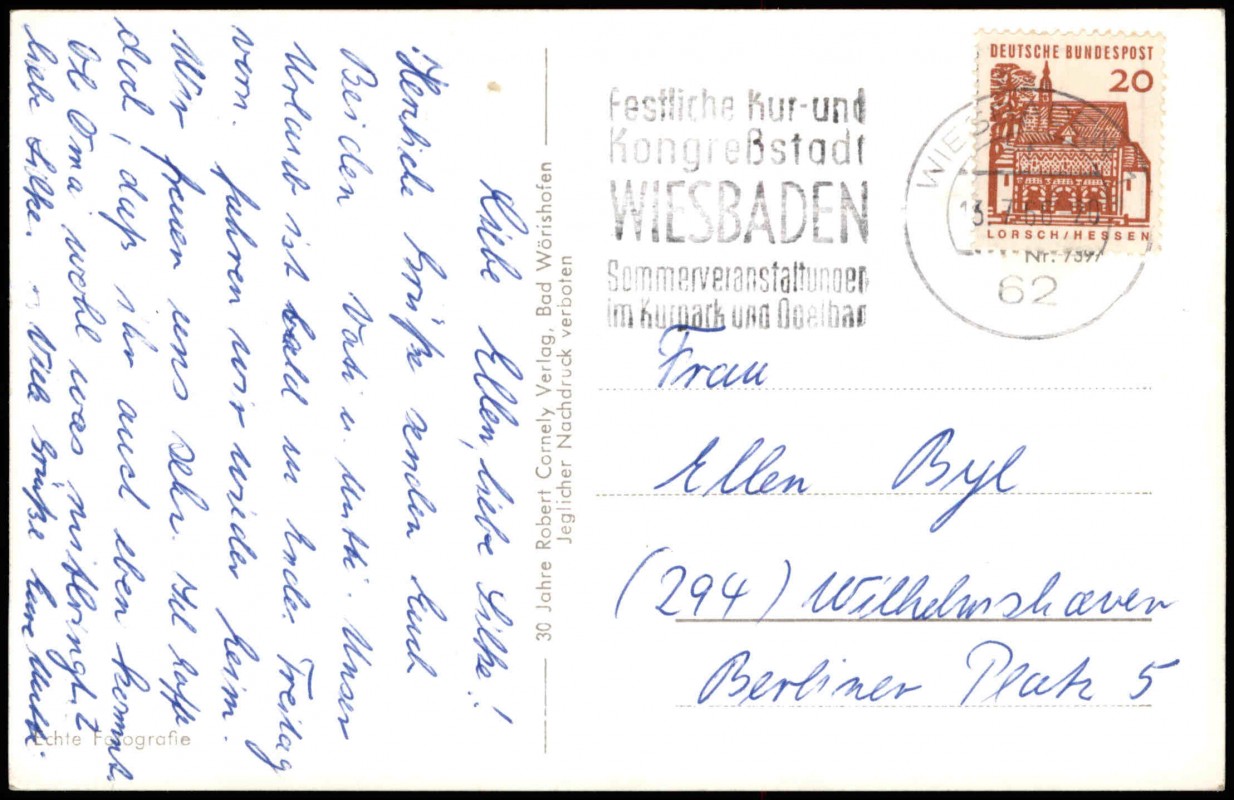 Liebe Ellen, liebe Silke!
Herzliche Grüße senden Euch
Beiden Vati u. Mutti. Unser
Urlaub ist bald zu Ende. Freitag
vorm. fahren wir wieder heim.
Wir freuen uns sehr. Ich hoffe
doch, daß ihr auch eben kommt.
Ob Oma wohl was mitbringt,
liebe Silke. Viele Grüße Eure Mutti.
30 Jahre Robert Cornely Verlag, Bad Wörishofen
Jeglicher Nachdruck verboten
Echte Fotografie
Festliche Kur- und
Kongreßstadt
WIESBADEN
Sommerveranstaltungen
im Kurpark und Opelbad
DEUTSCHE BUNDESPOST
20
LORSCH/HESSEN
WIESBADEN
13.7.66
62
Nr. 7397
Frau
Ellen Byl
(294) Wilhelmshaven
Berliner Platz 5